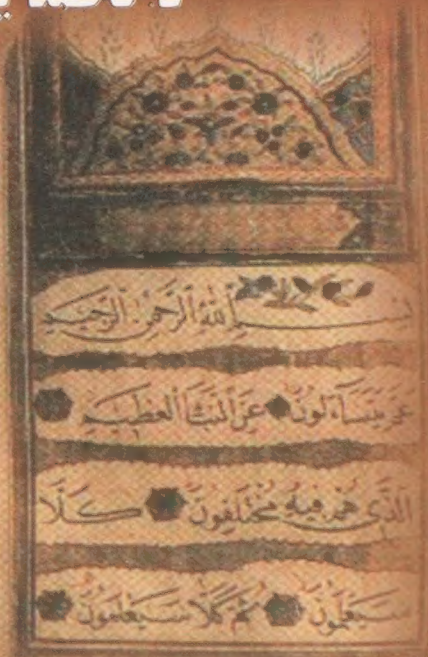 بسم الله الرحمن الرحيم
عم يتساءلون عن النبأ العظيم
الذي هم فيه مختلفون كلا
سيعلمون ثم كلا سيعلمون